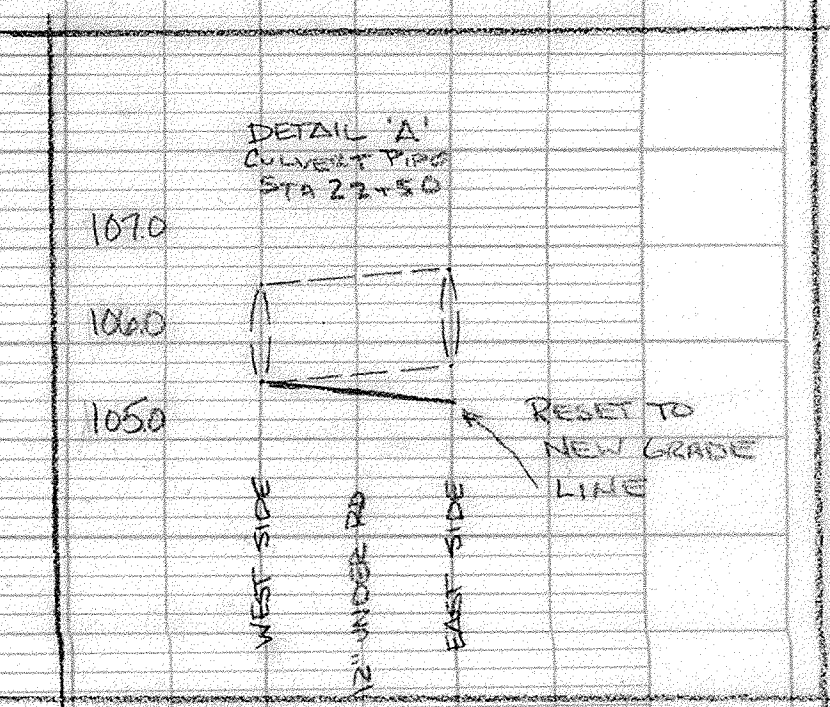 DETAIL 'A'
CULVERT PIPE
STA 22+50
107.0
106.0
105.0
RESET TO
NEW GRADE
LINE
WEST SIDE
12" UNDER RD
EAST SIDE